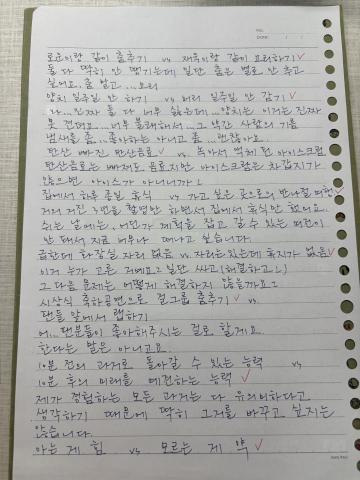 로운이랑 같이 춤추기 vs 재욱이랑 같이 요리하기 ✓
둘 다 딱히 안 땡기는데 일단 춤은 별로 안 추고
싶어요. 춤 말고 ... 요리
양치 일주일 안 하기 vs 머리 일주일 안 감기 ✓
나... 진짜 둘 다 너무 싫은데... 양치는, 이거는 진짜
못 견뎌요... 너무 불쾌해서... 그 약간 사람의 기름
냄새를 좀... 좋아하는 아니고 좀 ... 괜찮아요.
탄산 빠진 탄산음료 ✓ vs 녹아서 액체 된 아이스크림
탄산음료는 빠져도 음료지만 아이스크림은 차갑지가
않으면 아이스가 아니니까!
집에서 하루 종일 휴식 vs 가고 싶은 곳으로의 반나절 여행 ✓
거의 저긴 3번을 촬영만 하면서 집에서 휴식만 했어요..
쉬는 날에는. 어딘가 계획을 잡고 갈 수 있는 여건이
안 돼서 지금 너무나 떠나고 싶습니다.
급한데 화장실 자리 없음 vs 자리는 있는데 휴지가 없음 ✓
이거 누가 고른 거예요? 일단 싸고 (해결하고!)
그 다음 문제는 어떻게 해결하지 않을까요?
시상식 축하공연으로 걸그룹 춤추기 ✓ vs
팬들 앞에서 랩하기
어.. 팬분들이 좋아해주시는 걸로 할게요.
한다는 말은 아니고요.
10분 전의 과거로 돌아갈 수 있는 능력 vs
10분 후의 미래를 예견하는 능력 ✓
제가 경험하는 모든 과거는 다 유의미하다고
생각하기 때문에 딱히 그거를 바꾸고 싶지는
않습니다.
아는 게 힘 vs 모르는 게 약 ✓